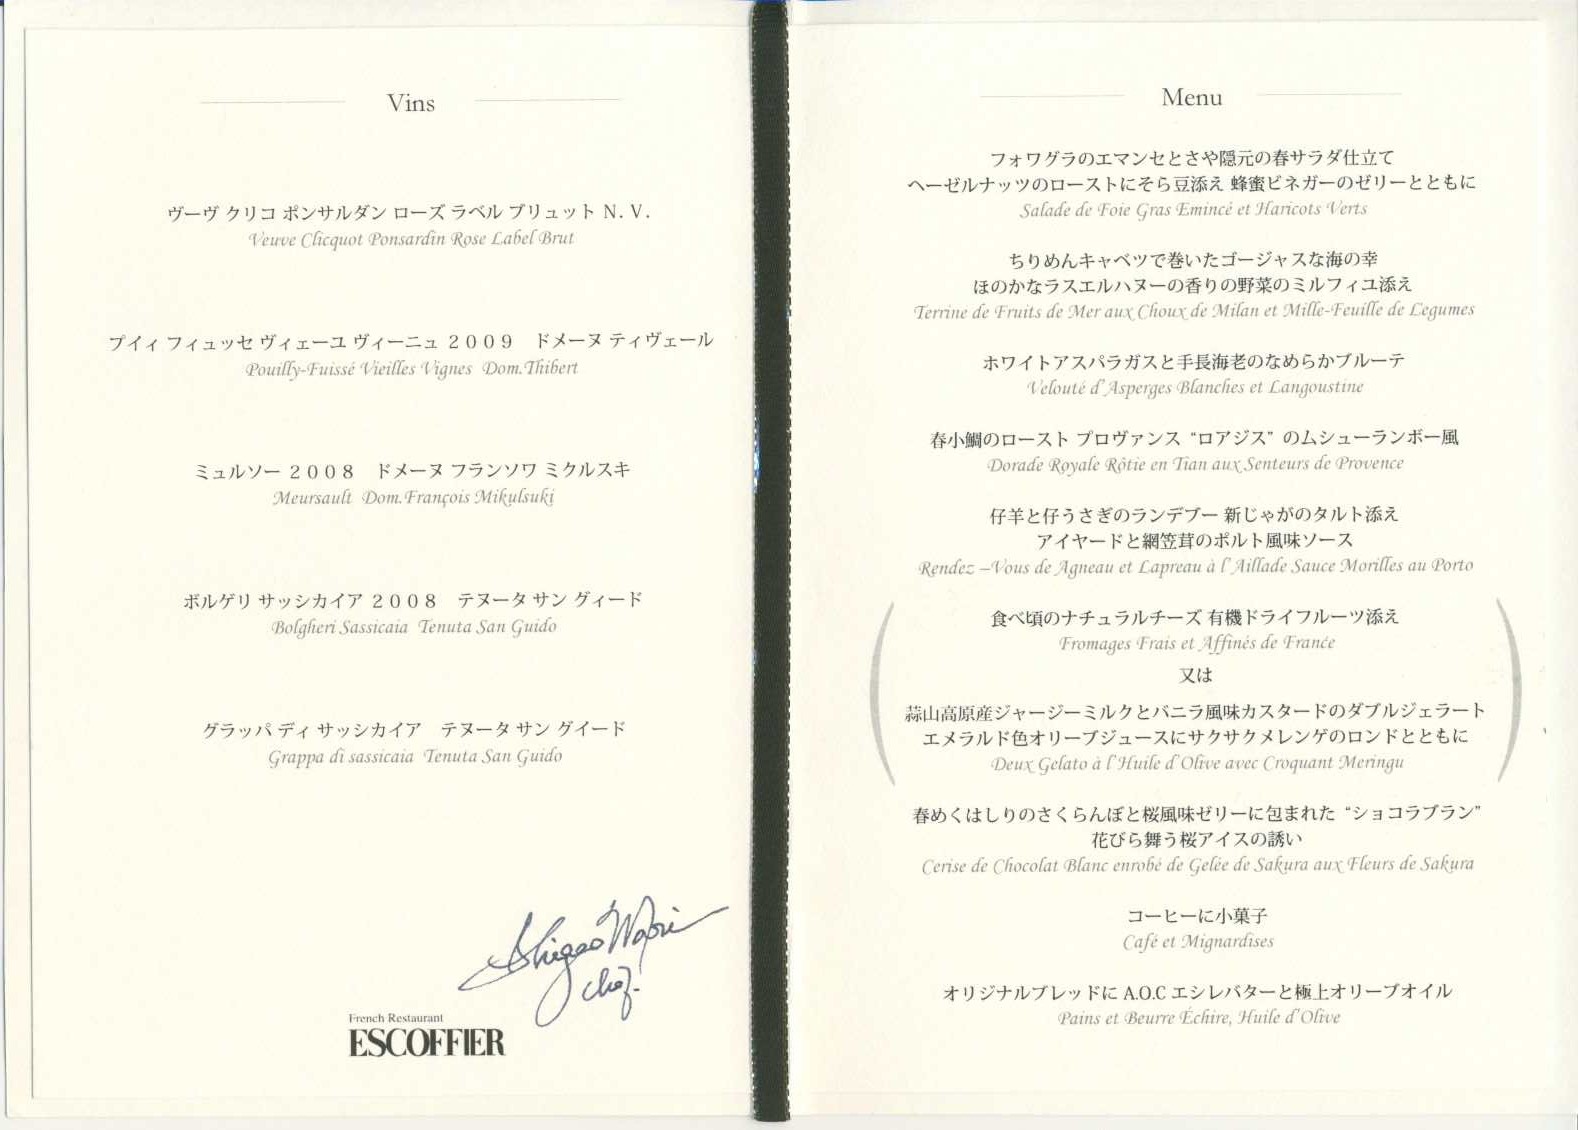 Vins
ヴーヴ クリコ ポンサルダン ローズ ラベル ブリュット N.V.
Veuve Clicquot Ponsardin Rose Label Brut
プイィ フィュッセ ヴィェーユ ヴィーニュ 2009　ドメーヌ ティヴェール
Pouilly-Fuissé Vieilles Vignes Dom.Thibert
ミュルソー 2008　ドメーヌ フランソワ ミクルスキ
Meursault Dom.François Mikulsuki
ボルゲリ サッシカイア 2008　テヌータ サン グィード
Bolgheri Sassicaia Tenuta San Guido
グラッパ ディ サッシカイア　テヌータ サン グイード
Grappa di sassicaia Tenuta San Guido
chef.
French Restaurant
ESCOFFIER
Menu
フォワグラのエマンセとさや隠元の春サラダ仕立て
ヘーゼルナッツのローストにそら豆添え 蜂蜜ビネガーのゼリーとともに
Salade de Foie Gras Emincé et Haricots Verts
ちりめんキャベツで巻いたゴージャスな海の幸
ほのかなラスエルハヌーの香りの野菜のミルフィユ添え
Terrine de Fruits de Mer aux Choux de Milan et Mille-Feuille de Legumes
ホワイトアスパラガスと手長海老のなめらかブルーテ
Velouté d'Asperges Blanches et Langoustine
春小鯛のロースト プロヴァンス “ロアジス” のムシューランボー風
Dorade Royale Rôtie en Tian aux Senteurs de Provence
仔羊と仔うさぎのランデブー 新じゃがのタルト添え
アイヤードと網笠茸のポルト風味ソース
Rendez –Vous de Agneau et Lapreau à l'Aillade Sauce Morilles au Porto
食べ頃のナチュラルチーズ 有機ドライフルーツ添え
Fromages Frais et Affinés de France
又は
蒜山高原産ジャージーミルクとバニラ風味カスタードのダブルジェラート
エメラルド色オリーブジュースにサクサクメレンゲのロンドとともに
Deux Gelato à l'Huile d'Olive avec Croquant Meringu
春めくはしりのさくらんぼと桜風味ゼリーに包まれた “ショコラブラン”
花びら舞う桜アイスの誘い
Cerise de Chocolat Blanc enrobé de Gelée de Sakura aux Fleurs de Sakura
コーヒーに小菓子
Café et Mignardises
オリジナルブレッドに A.O.C エシレバターと極上オリーブオイル
Pains et Beurre Échire, Huile d'Olive